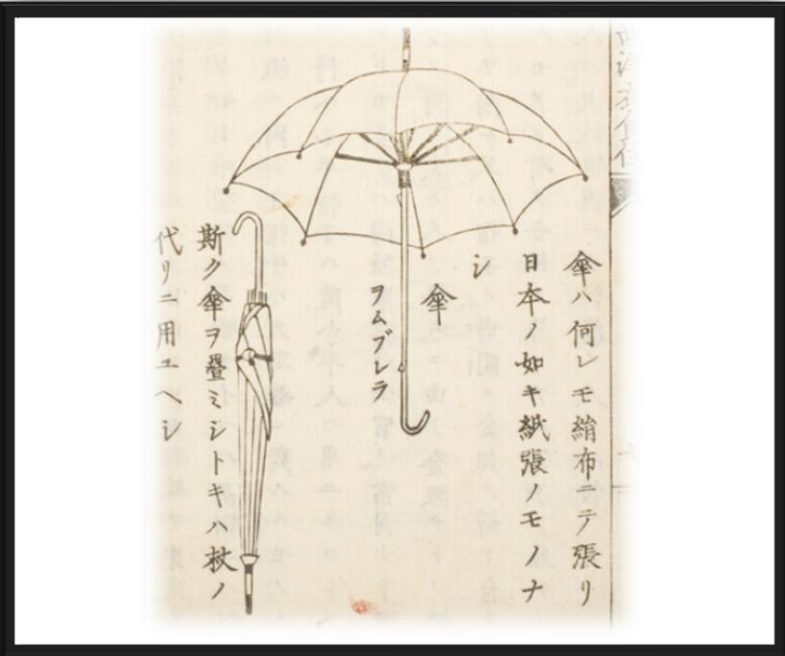 傘ハ何レモ絹布ニテ張リ
日本ノ如キ紙張ノモノナ
シ
傘
ヲムブレラ
斯ク傘ヲ疊ミシトキハ杖ノ
代リニ用ユヘシ